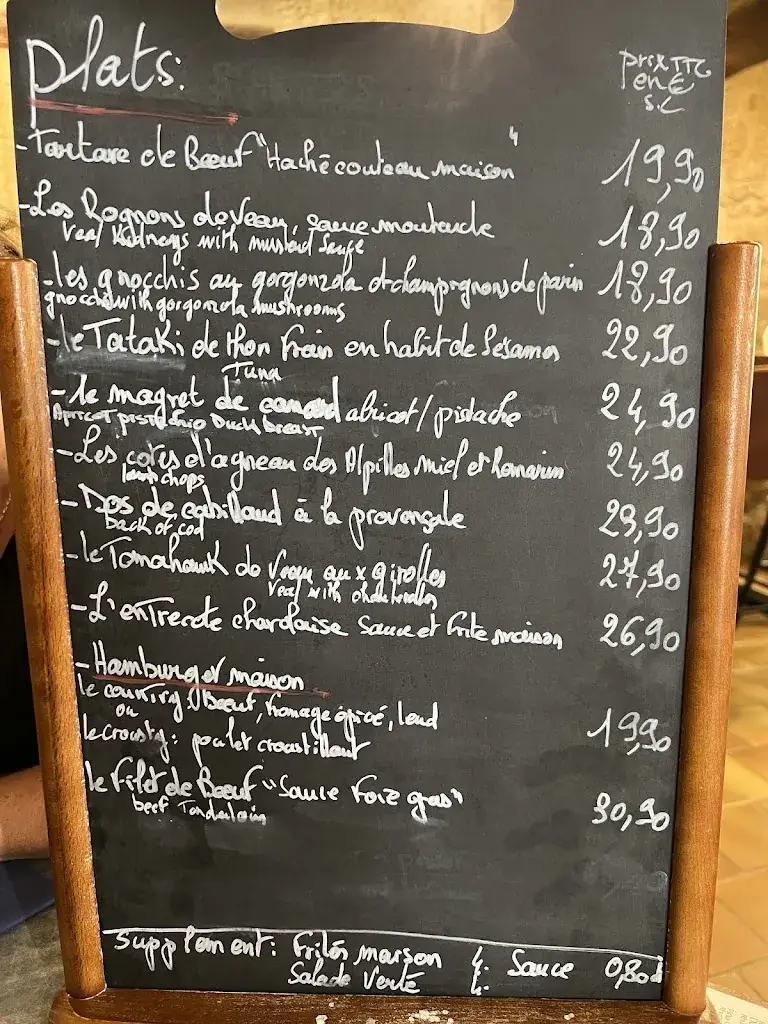 plats:
prix TTC
en €
s.c
- Tartare de Bœuf "Haché couteau maison" 19,90
- Les Rognons de Veau, sauce moutarde 18,90
Veal Kidneys with mustard sauce
- les gnocchis au gorgonzola et champignons de paris 18,90
gnocchi with gorgonzola mushrooms
- le Tataki de thon Frais en habit de Sésames 22,90
Tuna
- le magret de canard abricot/pistache 24,90
Apricot pistachio Duck breast
- Les cotes d'agneau des Alpilles miel et Romarin 24,90
lamb chops
- Dos de cabillaud à la provençale 23,90
back of cod
- le Tomahawk de Veau aux girolles 27,90
Veal with chanterelles
- L'entrecote charolaise Sauce et frite maison 26,90
- Hamburger maison
le country: Bœuf, fromage épicé, lard
ou 19,90
le crousty: poulet croustillant
le Filet de Bœuf "Sauce Foie gras" 30,90
beef Tenderloin
Supplement: Frites maison 4. Sauce 0,80
Salade Verte 4.